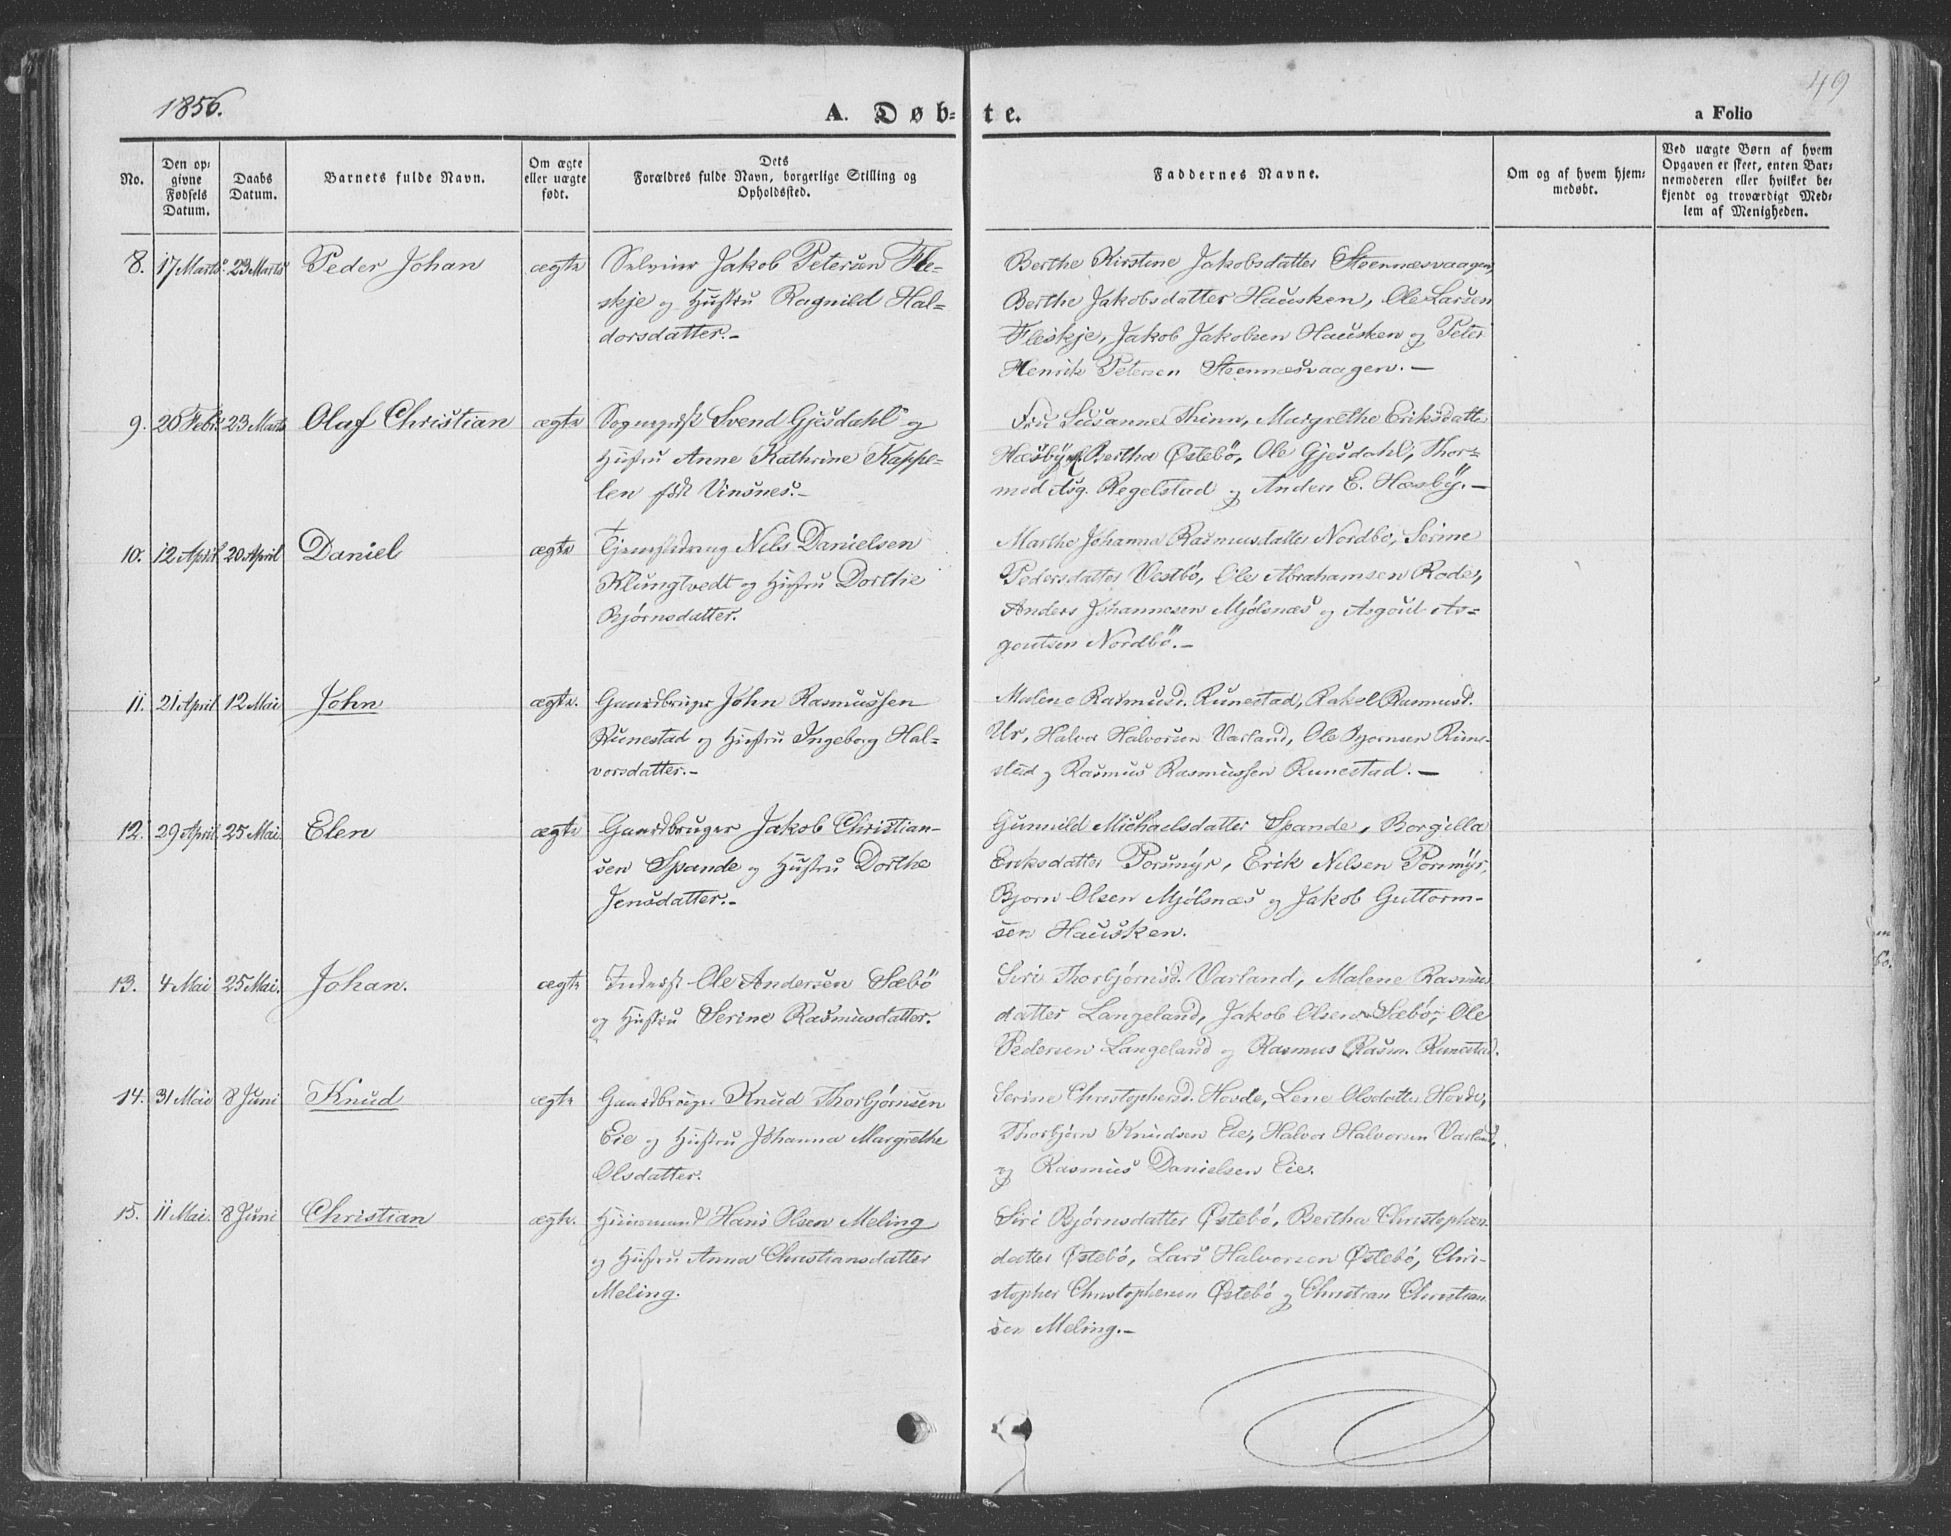 1856.
A. Døb-
te.
49
a Folio
No.
Den op-
givne
Fødsels
Datum.
Daabs
Datum.
Barnets fulde Navn.
Om ægte
eller uægte
født.
Dets
Forældres fulde Navn, borgerlige Stilling og
Opholdssted.
Faddernes Navne.
Om og af hvem hjem-
medøbt.
Ved uægte Børn af hvem
Opgaven er skeet, enten Bar-
nemoderen eller hvilket be-
kjendt og troværdigt Med-
lem af Menigheden.
8. 17 Marts 23 Marts Peder Johan ægte Selveier Jakob Petersen Fle-
skje og Hustru Ragnild Hal-
dorsdatter.-
Berthe Kirstine Jakobsdatter Steennæsvaagen,
Berthe Jakobsdatter Hausken, Ole Larsen
Fleskje, Jakob Jakobsen Hausken og Peter
Henrik Petersen Steennæsvaagen.-
9. 20 Febr. 23 Marts Olaf Christian ægte Sognepræst Svend Gjesdahl og
Hustru Anne Kathrine Kappe-
len født Vinsnes.-
Fru Susanne Thinn, Margrethe Eriksdatter
Hæsby, Bertha Østebö, Ole Gjesdahl, Thor-
mod Asg. Regelstad og Anders E. Hæsby.-
10. 12 April 20 April Daniel ægte Tjenestedreng Nils Danielsen
Klungtvedt og Hustru Dorthe
Bjørnsdatter.
Marthe Johanna Rasmusdatter Nordbö, Serine
Pedersdatter Vestbö, Ole Abrahamsen Rode,
Anders Johannesen Mjölsnæs og Asgout As-
goutsen Nordbö.-
11. 21 April 12 Mai John ægte. Gaardbruger John Rasmussen
Runestad og Hustru Ingeborg Hal-
vorsdatter.-
Malene Rasmusd. Runestad, Rakel Rasmusd.
Ur, Halvor Halvorsen Varland, Ole Bjornsen Rune-
stad og Rasmus Rasmussen Runestad.-
12. 29 April 25 Mai. Elen ægte Gaardbruger Jakob Christian-
sen Spande og Hustru Dorthe
Jensdatter.-
Gunnild Michaelsdatter Spande, Borgilla
Eriksdatter Porsmyr, Erik Nilsen Porsmyr,
Bjorn Olsen Mjölsnæs og Jakob Guttorm-
sen Hausken.
13. 4 Mai 25 Mai. Johan. ægte Inderst Ole Andersen Sæbö
og Hustru Serine Rasmusdatter.
Siri Thorbjørnsd. Varland, Malene Rasmus
datter Langeland, Jakob Olsen Sæbö, Ole
Pedersen Langeland og Rasmus Rasm. Runestad.
14. 31 Mai 8 Juni Knud ægte Gaardbruger Knud Thorbjørnsen
Eie og Hustru Johanna Margrethe
Olsdatter.
Serine Christophersd. Hovde, Lene Olsdatter Hovde,
Thorbjørn Knudsen Eie, Halvor Halvorsen Varland,
og Rasmus Danielsen Eie.
15. 11 Mai. 8 Juni Christian ægte. Huusmand Hans Olsen Meling
og Hustru Anna Christiansdatter
Meling.
Siri Bjørnsdatter Østebö, Bertha Christophers
datter Østebö, Lars Halvorsen Østebö, Chri-
stopher Christophersen Østebö og Christian Christian
sen Meling.-